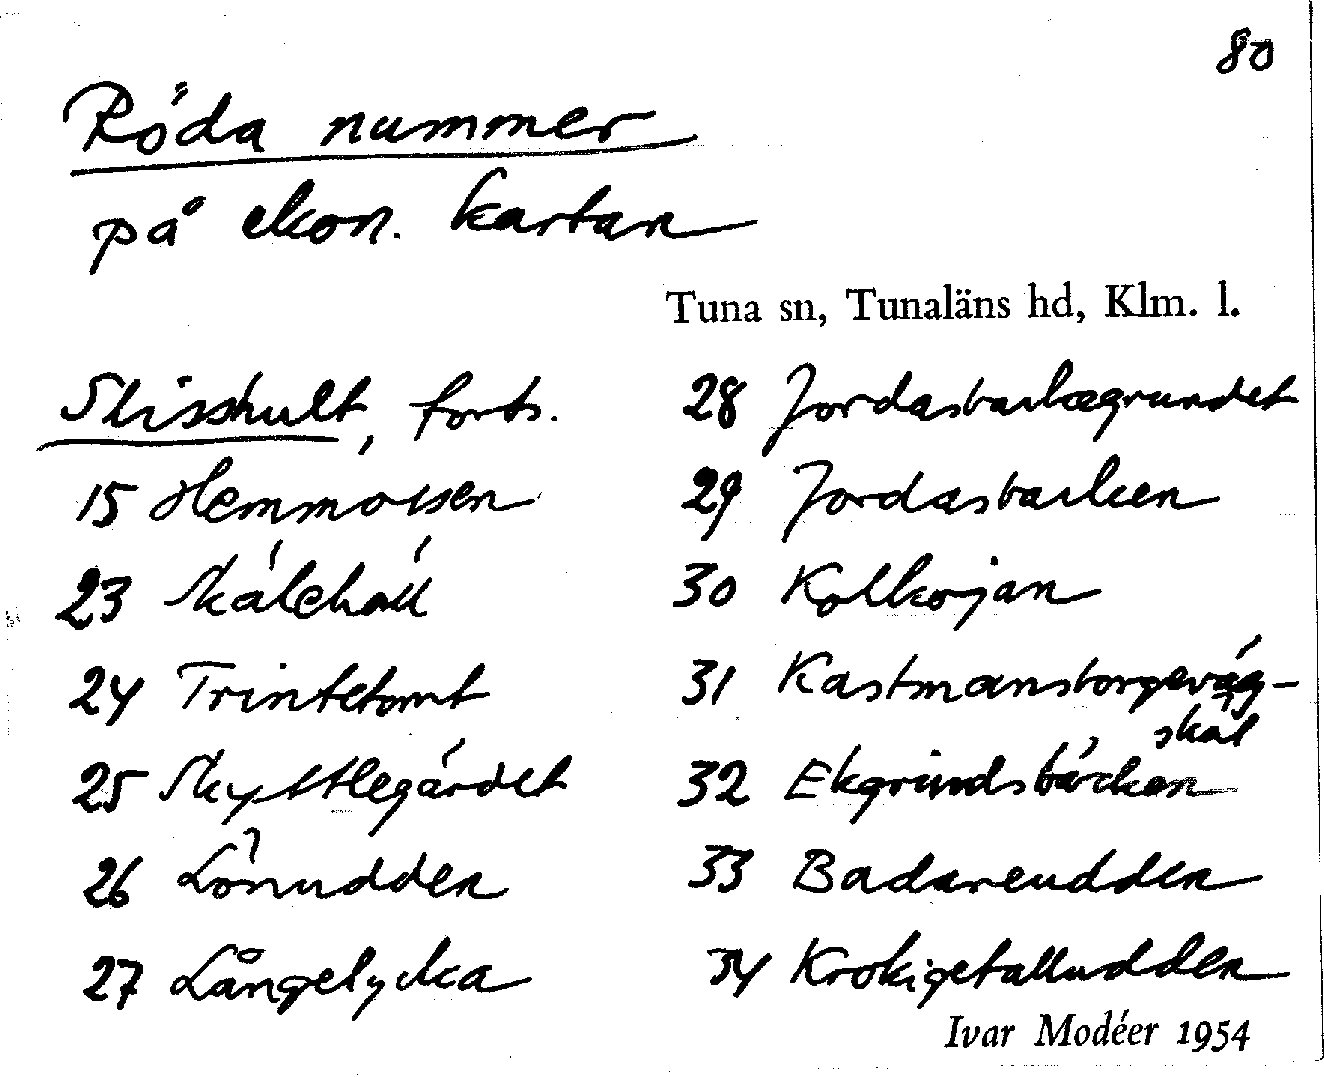 80
Röda nummer
på ekon. kartan
Tuna sn, Tunaläns hd, Klm. l.
Slisshult, forts.
15 Hemmossen
23
24 Trintetomt
25 Skyttlegärdet
26 Lönudden
27 Långelycka
28 Jordasbackegrundet
29 Jordasbacken
30 Kolkojan
31 Kastmansborgeväg-
skäl
32 Ekgrindsbäcken
33 Badareudden
34 Krokigetalludden
Ivar Modéer 1954